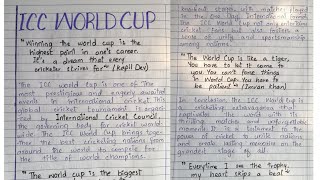 ICC WORLD CUP
"Winning the world cup is the
highest point in one's career.
It's a dream that every
cricketer strives for" (Kapil Dev)
The ICC world cup is one of the
most prestigious and eagerly awaited
event in international cricket. This
global cricket tournament is organi-
zed by International Cricket Council,
the governing body for cricket world
wide. The ICC World Cup brings toge-
ther the best cricketing nations from
around the world to compete for
the title of world champions.
"The world cup is the biggest
knockout stage, with matches played
in the One Day International format.
The World Cup not only entertains
cricket fans but also fosters a
sense of unity and sportsmanship
among nations.
"The World Cup is like a tiger,
You have to let it come to
you. You can't force things
in World Cup. You have to
be patient" (Imran Khan)
In Conclusion, the ICC World Cup is
a cricketing extravaganza that
captivates the world with its
thrilling matches and unforgettable
moments. It is a testament to the
power of cricket to unite nations
and create lasting memories on the
grandest stage of all.
"Everytime I see the trophy,
my heart skips a beat"